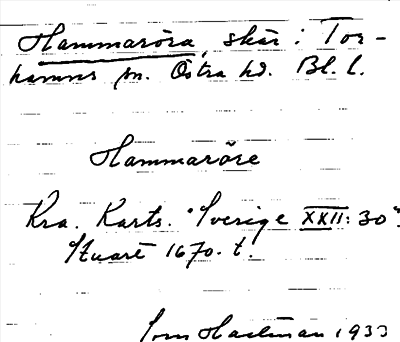 Hammaröra, skär i Tor-
hamns sn. Östra hd. Bl. l.
Hammaröre
Kra. Karts. "Sverige XXII: 30"
Stuart 1670. t.
Hartman 1933